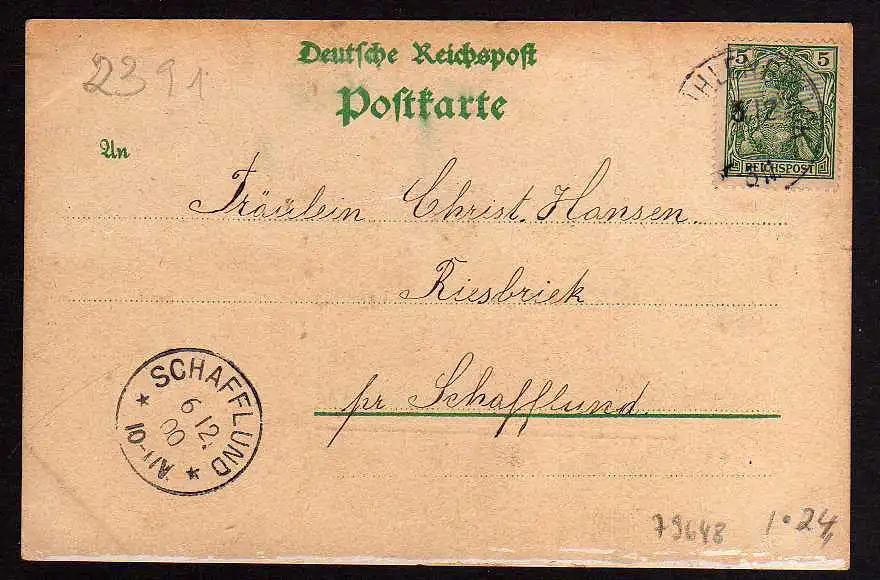 2391
Deutsche Reichspost
Postkarte
An
5 5
REICHSPOST
5 12
Fräulein Christ. Hansen
Riesbriek
pr Schafflund.
SCHAFFLUND
6 12.
00
10-11V
79648
1.24